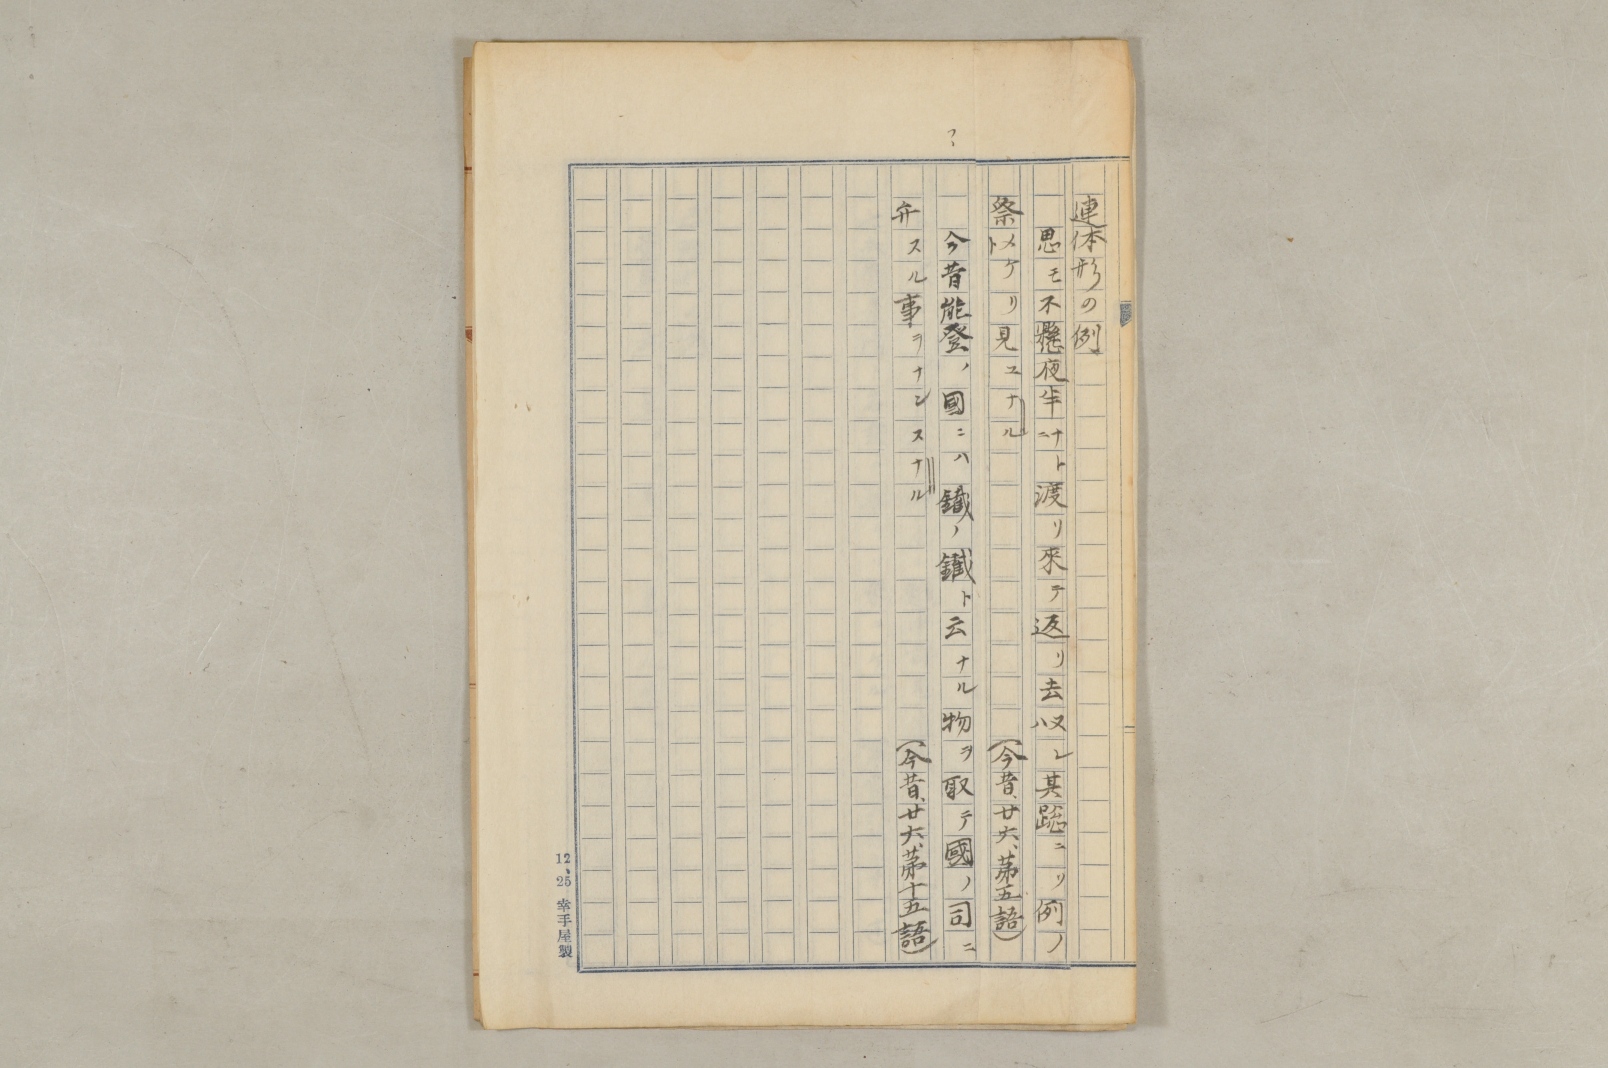 連体形の例
思モ不懸夜半ナトニ渡リ來テ返リ去ヌレハ其跡ニリ例ノ
祭ナトメリケリ見ユナル
今昔能登ノ國ニハ鐵ノ鐵ト云ナル物ヲ取テ國ノ司ニ
弁スル事ヲナンスナル
(今昔、廿六、第五語)
(今昔、廿六、第十五語)
12、25 幸手屋製